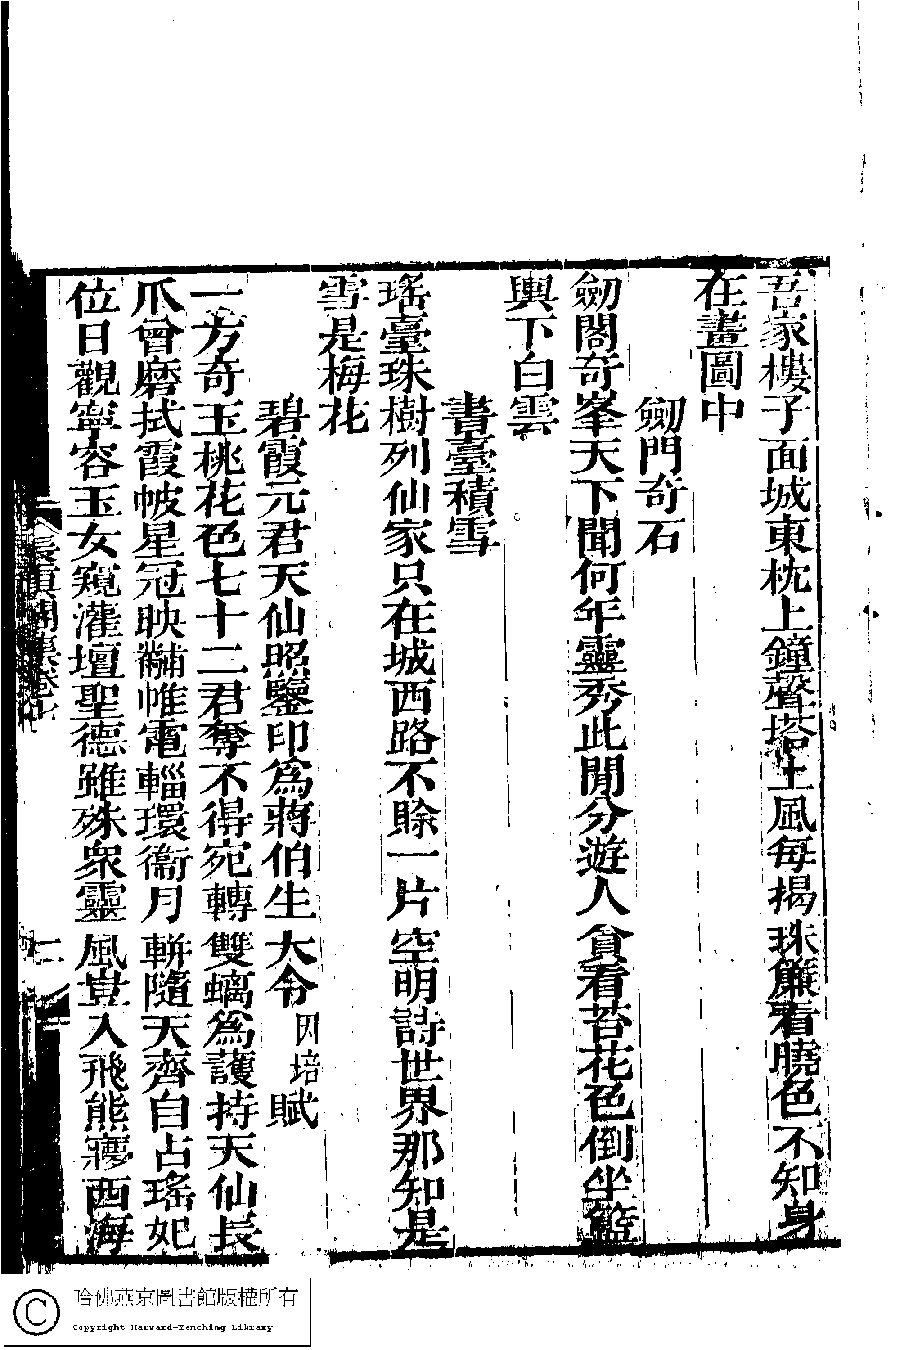 吾家樓子面城東枕上鐘聲塔上風每揭珠簾看曉色不知身
在畫圖中
劒門奇石
劒閣奇峯天下聞何年靈秀此閒分遊人貪看苔花色倒坐籃
輿下白雲
書臺積雪
瑤臺珠樹列仙家只在城西路不賖一片空明詩世界那知是
雪是梅花
碧霞元君天仙照鑒印爲蔣伯生大令因培賦
一方奇玉桃花色七十二君奪不得宛轉雙螭爲護持天仙長
爪曾磨拭霞帔星冠映黼帷電輜環衞月輧隨天齊自占瑤妃
位日觀寧容玉女窺灌壇聖德雖殊衆靈風豈入飛熊夢西海
長真閣集卷七
二
哈佛燕京圖書館版權所有
Copyright Harvard-Yenching Library